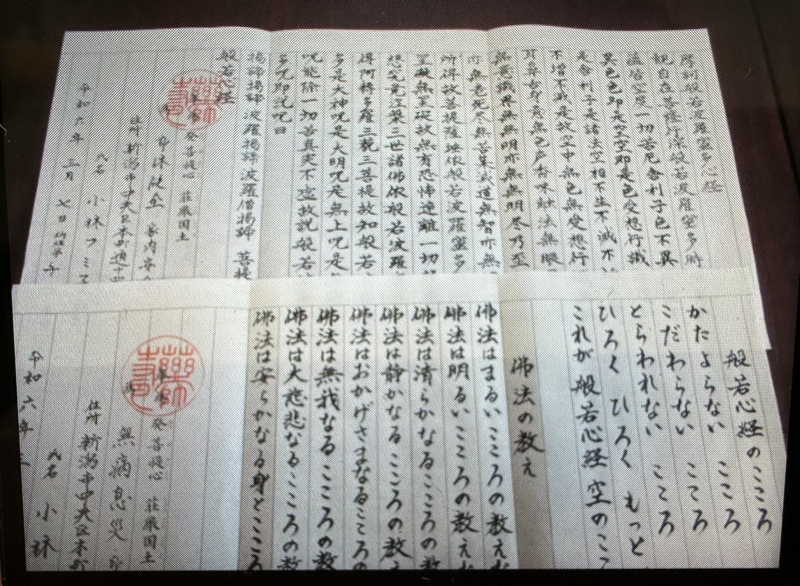 摩訶般若波羅蜜多心経
観自在菩薩行深般若波羅蜜多時
蘊皆空度一切苦厄舎利子色不異
異色色即是空空即是色受想行識
是舎利子是諸法空相不生不滅不
不増不減是故空中無色無受想行
耳鼻舌身意無色声香味触法無眼
無意識界無無明亦無無明尽乃至
亦無老死尽無苦集滅道無智亦無
所得故菩提薩埵依般若波羅蜜多
罣礙無罣礙故無有恐怖遠離一切
想究竟涅槃三世諸佛依般若波羅
得阿耨多羅三藐三菩提故知般若
多是大神呪是大明呪是無上呪是
呪能除一切苦真実不虚故説般若
多呪即説呪曰
掲諦掲諦 波羅掲諦 波羅僧掲諦 菩提
般若心経
発菩提心 荘厳国土
家内安
住所 新潟市中央区本町通十四
氏名 小林フミ
令和六年 三月 七日
般若心経のこころ
かたよらない こころ
こだわらない こころ
とらわれない こころ
ひろく ひろく もっと
これが 般若心経 空のこ
佛法の教え
佛法はまるいこころの教え
佛法は明るいこころの教え
佛法は清らかなるこころの教
佛法は静かなるこころの教え
佛法はおかげさまなるこころの
佛法は無我なるこころの教
佛法は大慈悲なるこころの教
佛法は安らかなる身とこころ
発菩提心 荘厳国土
無病息災
住所 新潟市中央区本町
氏名 小林
令和六年